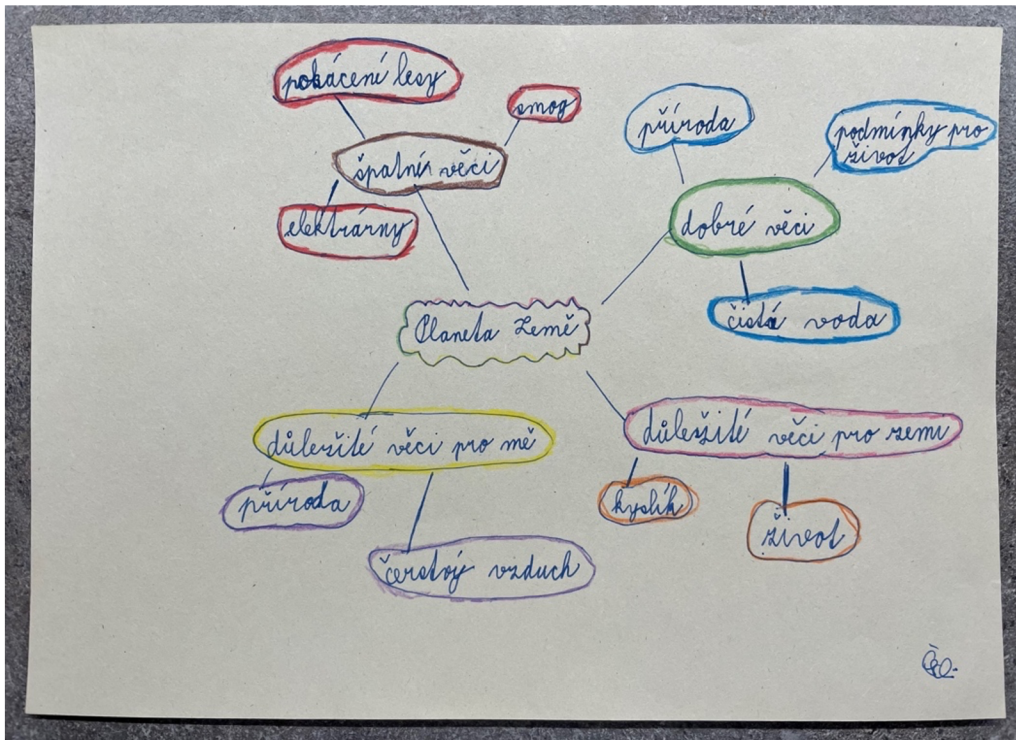 pokácení lesy
smog
špatné věci
elektrárny
příroda
podmínky pro
život
dobré věci
čistá voda
Planeta Země
důležité věci pro mě
příroda
čerstvý vzduch
důležité věci pro zemi
kyslík
život